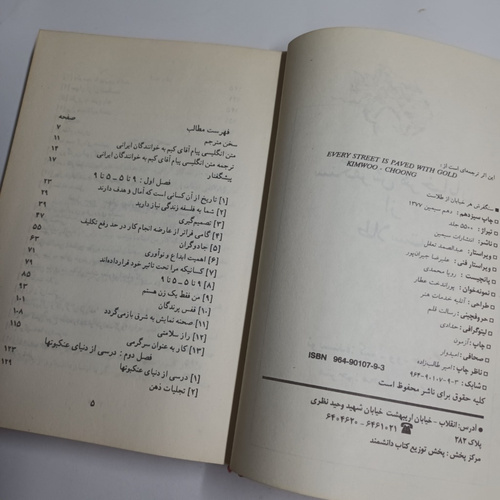 این اثر ترجمه‌ای است از:
EVERY STREET IS PAVED WITH GOLD
KIMWOO - CHOONG
سنگفرش هر خیابان از طلاست
چاپ سیزدهم: دهم سیمین ۱۳۷۷
تیراژ: ۵۵۰۰ جلد
ناشر: انتشارات سیمین
ویراستار: عبدالصمد تعقل
ویراستار فنی: علیرضا جبران‌پور
پانچیست: رویا محمدی
نمونه‌خوان: پوراندخت عطار
طراحی: آتلیه خدمات هنر
حروفچینی: رسالت قلم
لیتوگرافی: حدادی
چاپ: آزمون
صحافی: امیدوار
ناظر چاپ: امیر غالب‌زاده
شابک: ۳-۹-۹۰۱۰۷-۹۶۴
ISBN 964-90107-9-3
کلیه حقوق برای ناشر محفوظ است
آدرس: انقلاب - خیابان اریبهشت خیابان شهید وحید نظری
پلاک ۲۸۲ ۶۴۶۱۰۲۱ - ۶۴۰۴۶۲۰
مرکز پخش: پخش توزیع کتاب دانشمند
فهرست مطالب
صفحه
سخن مترجم ۷
متن انگلیسی پیام آقای کیم به خوانندگان ایرانی ۱۱
ترجمه متن انگلیسی پیام آقای کیم به خوانندگان ایرانی ۱۲
پیشگفتار ۱۷
فصل اول: ۹ تا ۵ ــ ۵ تا ۹
[۱] تاریخ از آن کسانی است که آمال و هدف دارند ۲۳
[۲] شما به فلسفه زندگی نیاز دارید ۲۹
[۳] تصمیم‌گیری ۳۹
[۴] گامی فراتر از عارضه انجام کار در حد رفع تکلیف ۴۷
[۵] جادوگران ۵۵
[۶] اهمیت ابداع و نوآوری ۶۳
[۷] کسانیکه مرا تحت تأثیر خود قرارداده‌اند ۷۱
[۸] ۹ تا ۵ ــ ۵ تا ۹ ۷۹
[۹] من فقط یک زن هستم ۸۵
[۱۰] قفس پرندگان ۹۳
[۱۱] صحنه نمایش به شرق بازمی‌گردد ۱۰۱
[۱۲] راز سلامتی ۱۰۸
[۱۳] کار به عنوان سرگرمی ۱۱۵
فصل دوم: درسی از دنیای عنکبوتها
[۱] درسی از دنیای عنکبوتها ۱۲۳
[۲] تجلیات ذهن ۱۲۹
۵